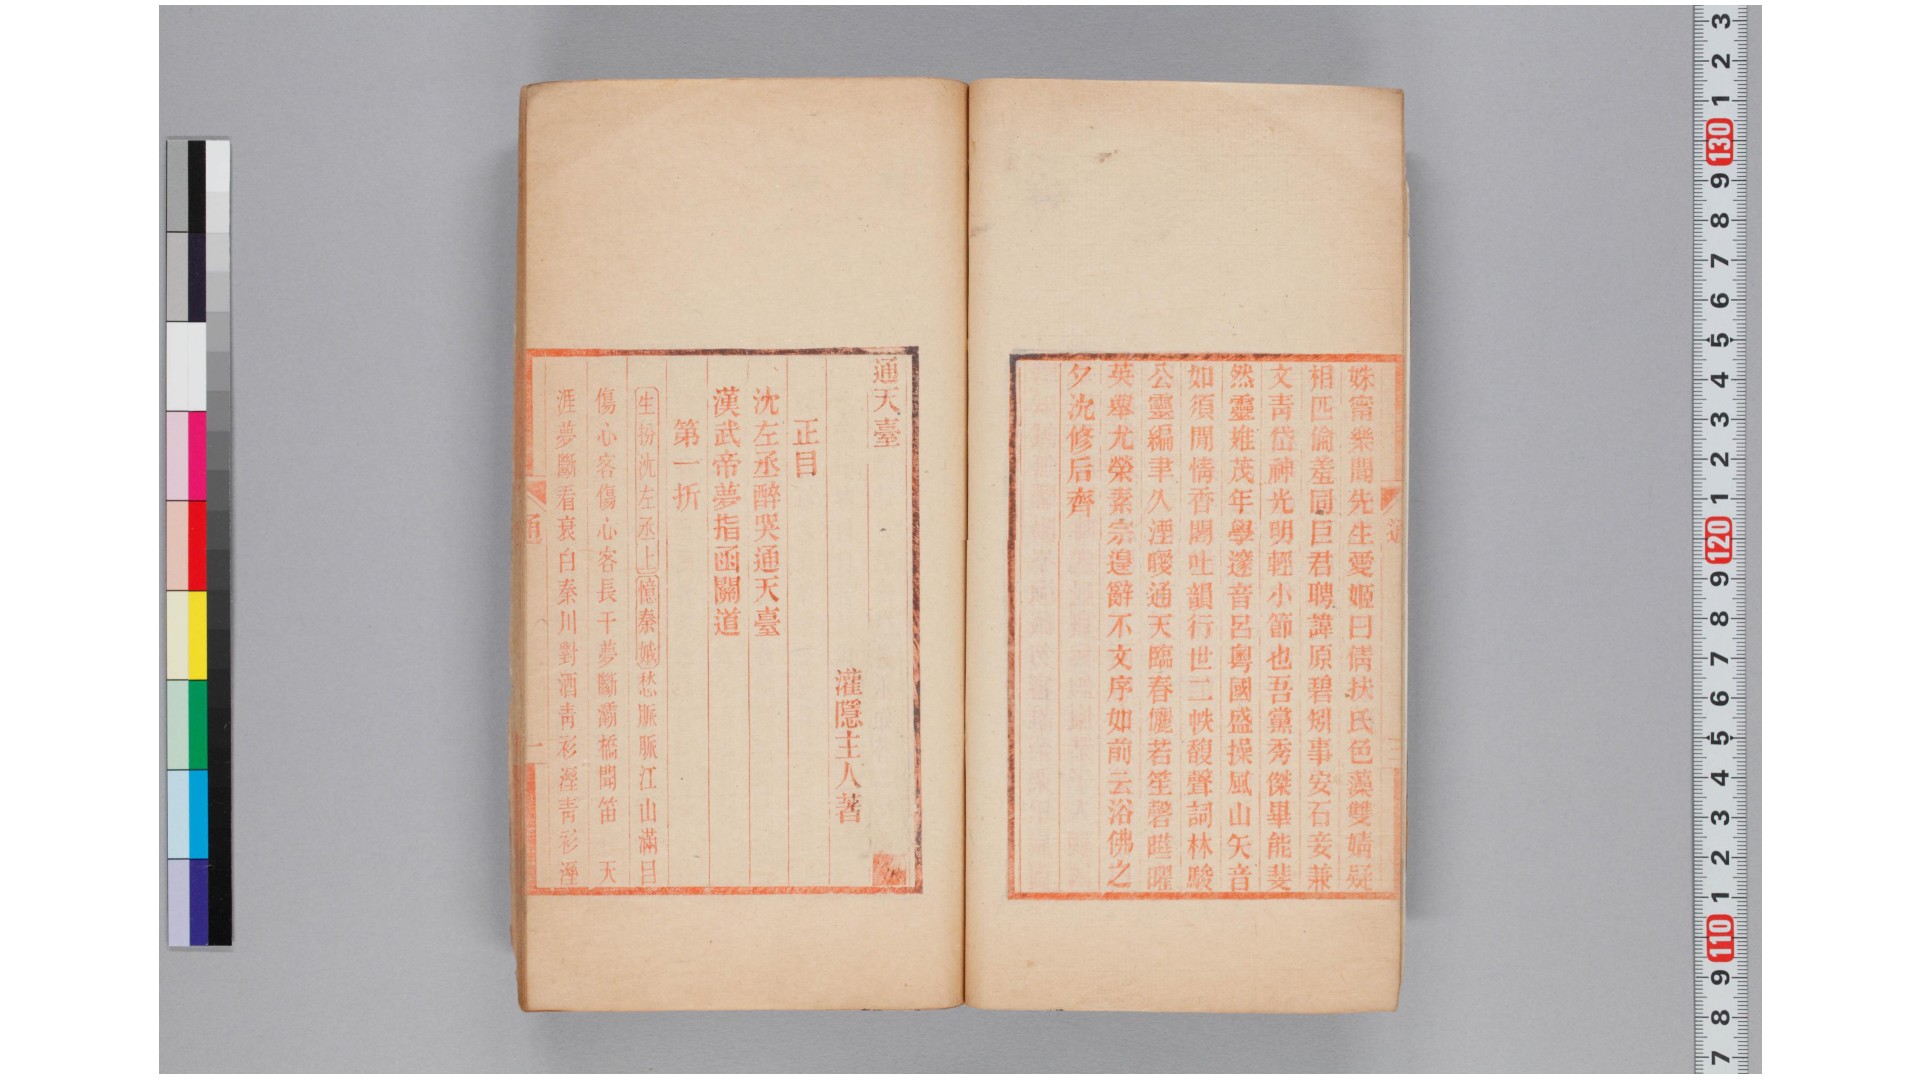 姝甯樂閣先生愛姬曰倩扶氏色藻雙婧疑
相匹倫羞同巨君聘諱原碧㛂事安石妾兼
文青岱神光明輕小節也吾黨秀傑畢能斐
然靈雉茂年學邃音呂粵國盛操風山矢音
如須閒情香閣吐韻行世二帙馥聲詞林駿
公靈編聿久湮曖通天臨春儷若笙磬暀曜
英舉尤榮素宗遑辭不文序如前云浴佛之
夕沈修后齊
通天臺
灌隱主人著
正目
沈左丞醉哭通天臺
漢武帝夢指函關道
第一折
生扮沈左丞上 憶秦娥 愁脈脈江山滿目
傷心客傷心客長干夢斷灞橋聞笛 天
涯夢斷看衰白秦川對酒青衫溼青衫溼
通 一
通 三
3 2 1 130 9 8 7 6 5 4 3 2 1 120 9 8 7 6 5 4 3 2 1 110 9 8 7